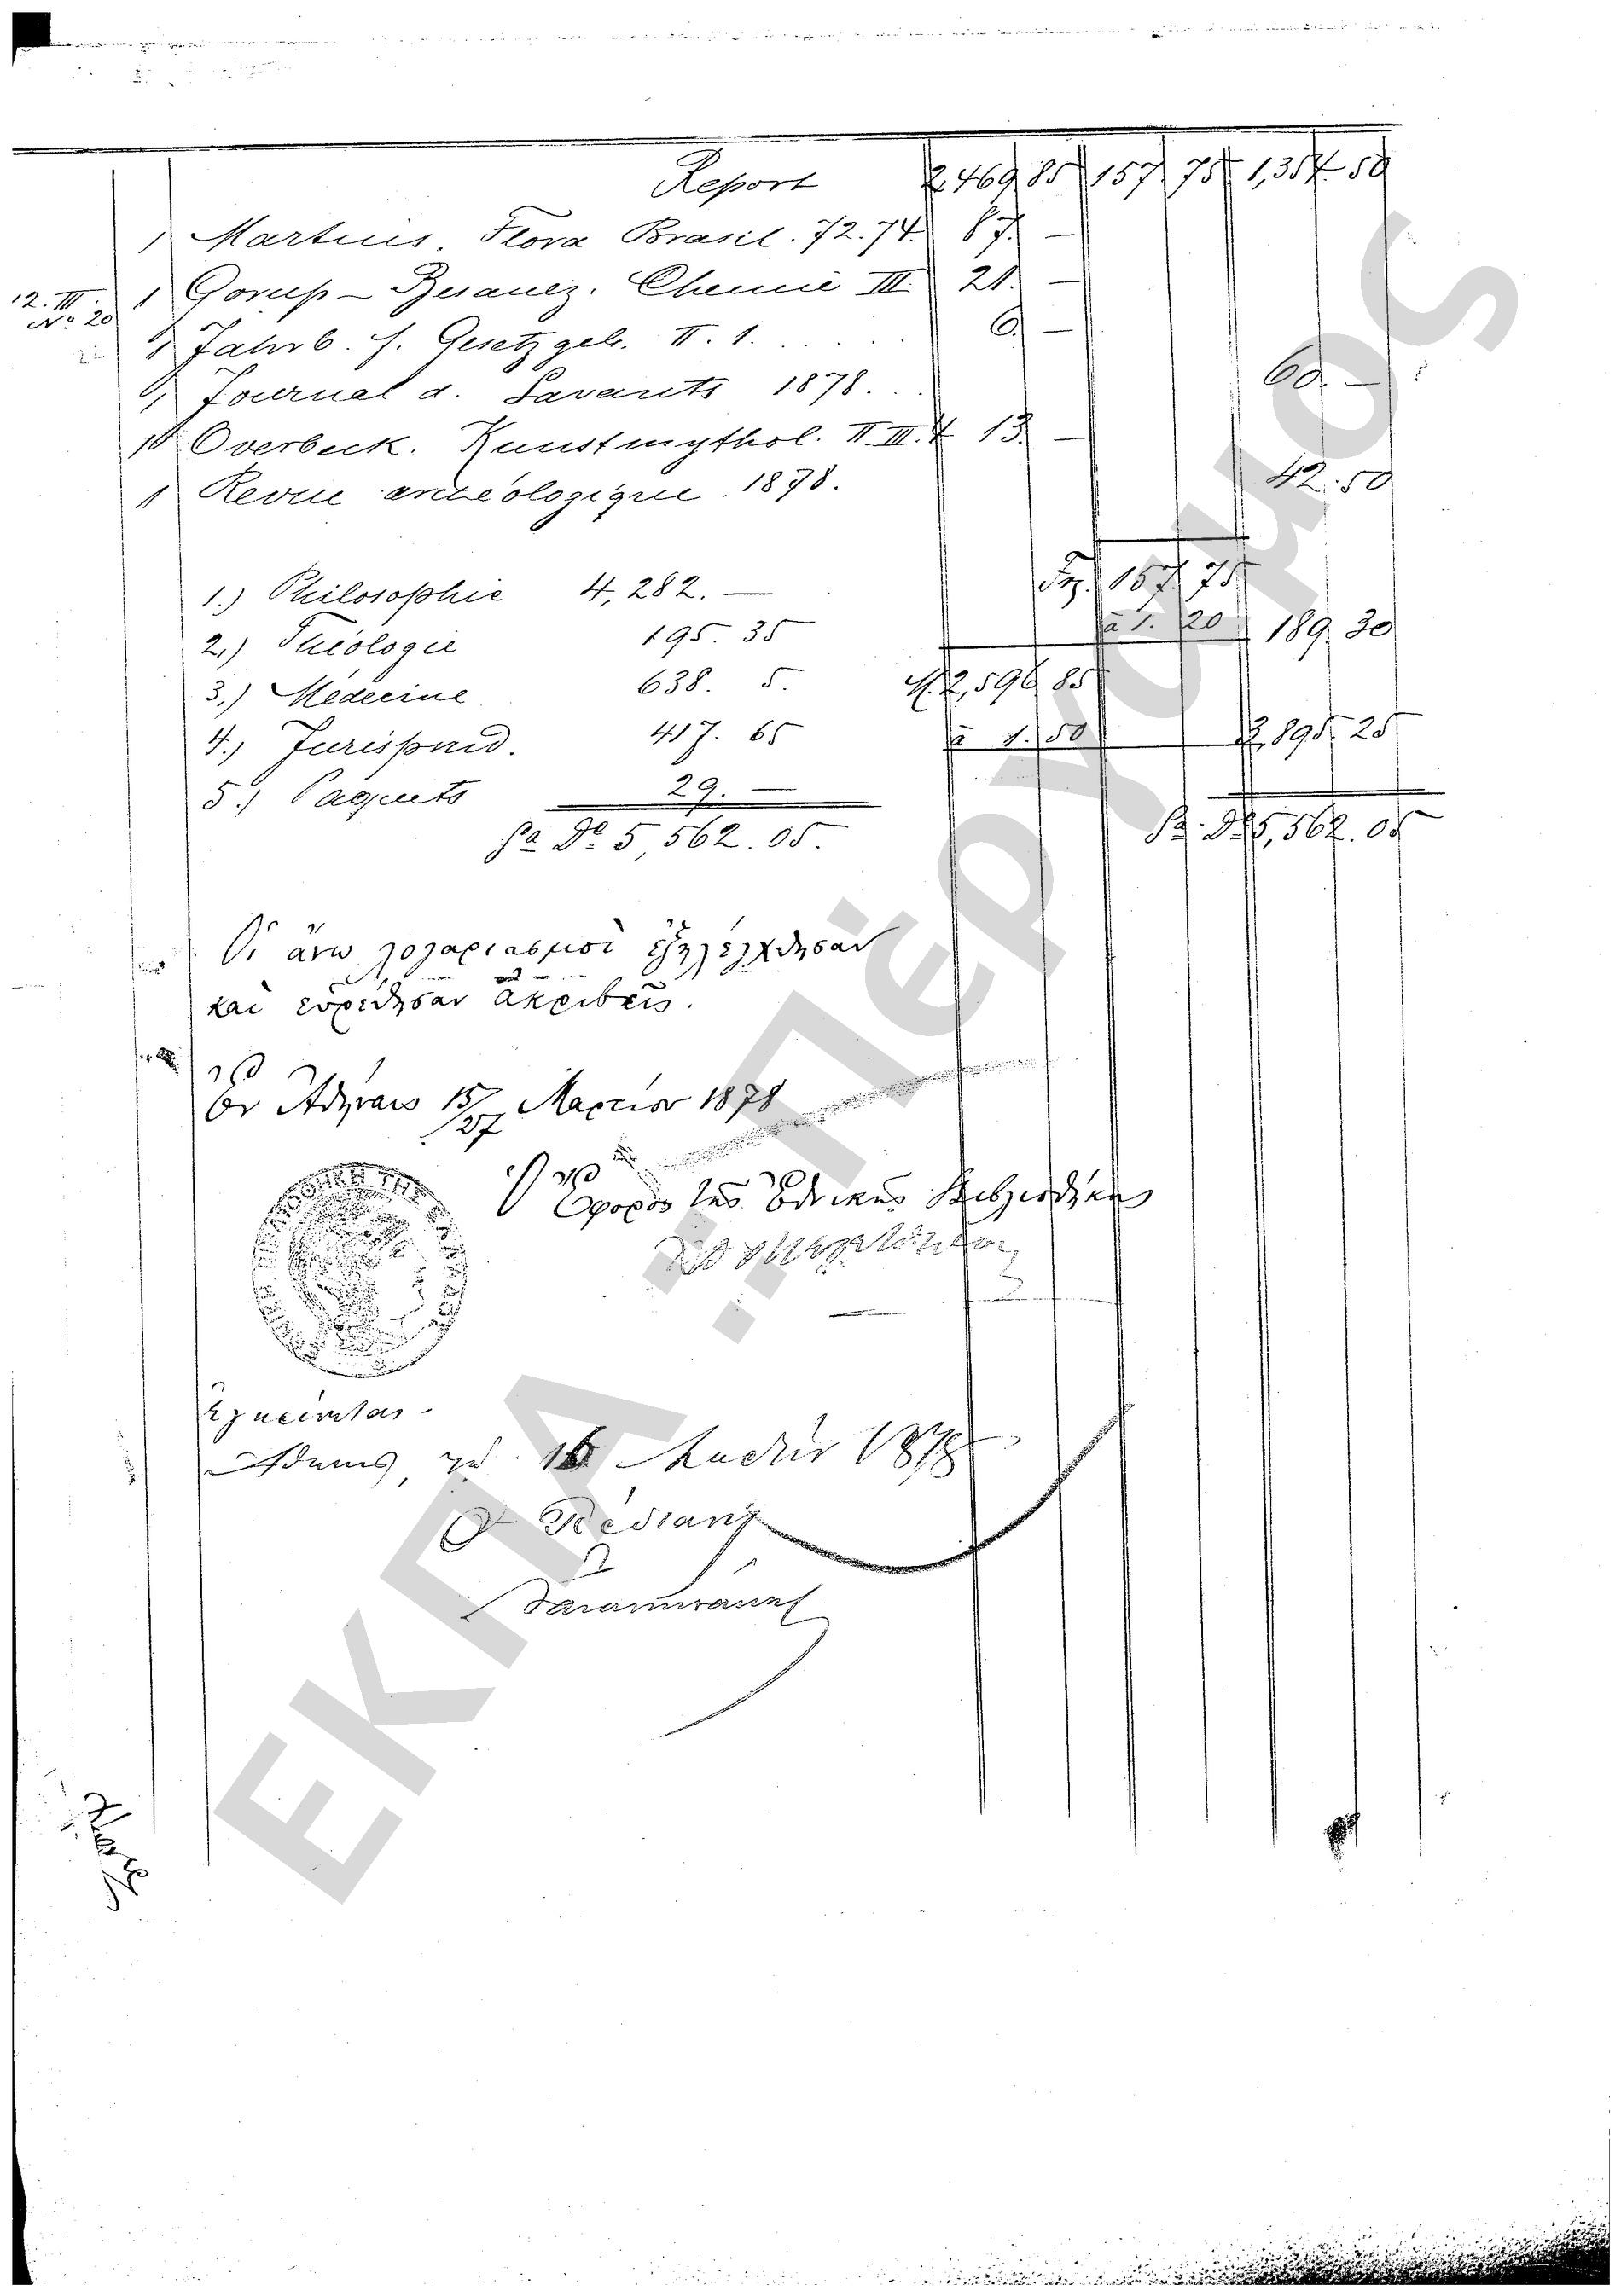 Report 2,469 85 157 75 1,354. 50
1 Martius. Flora Brasil. 72.74. 87. —
12. III. 1 Gorup – Besanez. Chemie III. 21. —
No. 20
1 Jahrb. f. Gesetzgeb. II. 1. . . . . . 6. —
1 Journal d. Savants 1878. . . 60. —
1 Overbeck. Kunstmythol. II. III. 4 13. —
1 Revue archéologique. 1878. 42. 50
Frz. 157. 75
1.) Philosophie 4,282. —
à 1. 20 189. 30
2.) Théologie 195. 35
3.) Médecine 638. 5.
M. 2,596 85
4.) Jurisprud. 417. 65
à 1. 50 3,895. 25
5.) Paquets 29. —
Sa. Do. 5,562. 05.
Sa. Do. 5,562. 05
Οἱ ἄνω λογαριασμοὶ ἐξηλέγχθησαν
καὶ εὑρέθησαν ἀκριβεῖς.
Ἐν Ἀθήναις 15/27 Μαρτίου 1878
Ὁ Ἔφορος τῆς Ἐθνικῆς Βιβλιοθήκης
ΒΙΒΛΙΟΘΗΚΗ ΤΗΣ
Ἐγκρίνεται.
Ἀθήνας, τῇ 16 1878
ΕΚΠΑ :: Πέργαμος